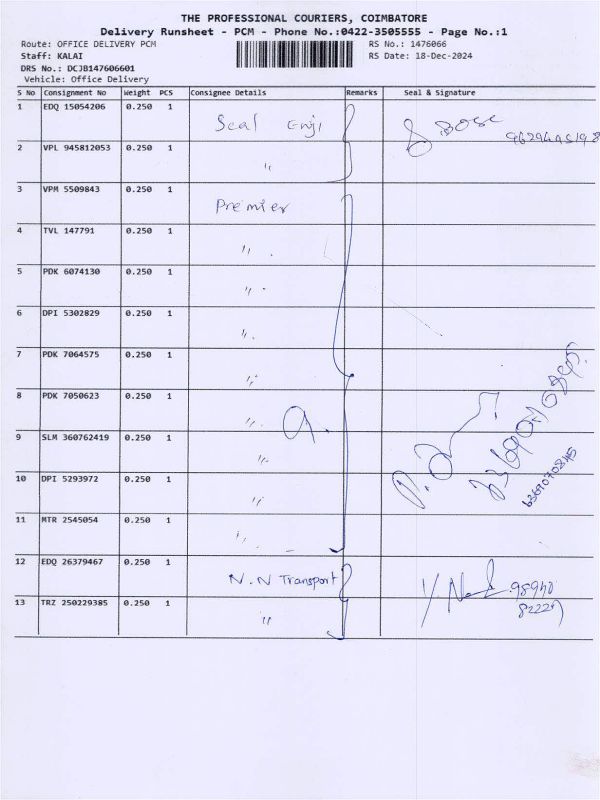 THE PROFESSIONAL COURIERS, COIMBATORE
Delivery Runsheet - PCM - Phone No.:0422-3505555 - Page No.:1
Route: OFFICE DELIVERY PCM
RS No.: 1476066
Staff: KALAI
RS Date: 18-Dec-2024
DRS No.: DCJB147606601
Vehicle: Office Delivery
S No Consignment No Weight PCS Consignee Details Remarks Seal & Signature
1 EDQ 15054206 0.250 1 Seal Engi
S.BOSE
2 VPL 945812053 0.250 1 "
3 VPM 5509843 0.250 1 Premier
4 TVL 147791 0.250 1 "
5 PDK 6074130 0.250 1 "
6 DPI 5302829 0.250 1 "
7 PDK 7064575 0.250 1 "
8 PDK 7050623 0.250 1 "
9.
9 SLM 360762419 0.250 1 "
10 DPI 5293972 0.250 1 "
11 MTR 2545054 0.250 1 "
12 EDQ 26379467 0.250 1 N.N Transport
98940
13 TRZ 250229385 0.250 1 "
82227